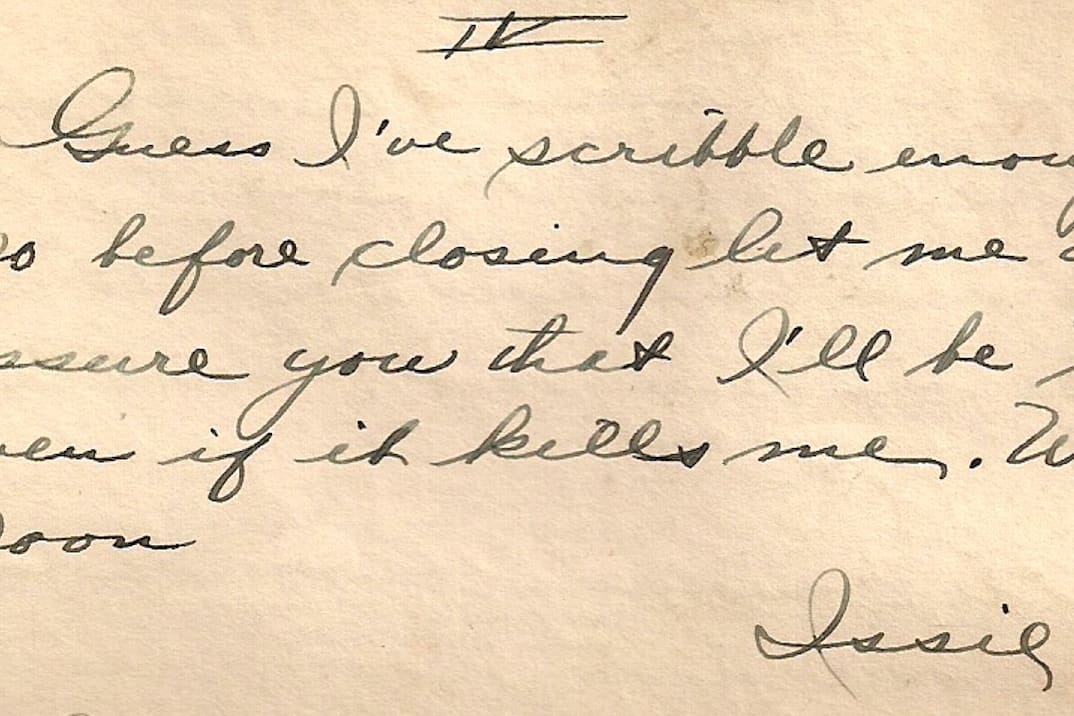 IV
Guess I've scribble enou
so before closing let me
ssure you that I'll be
ven if it kills me. W
Soon
Issie